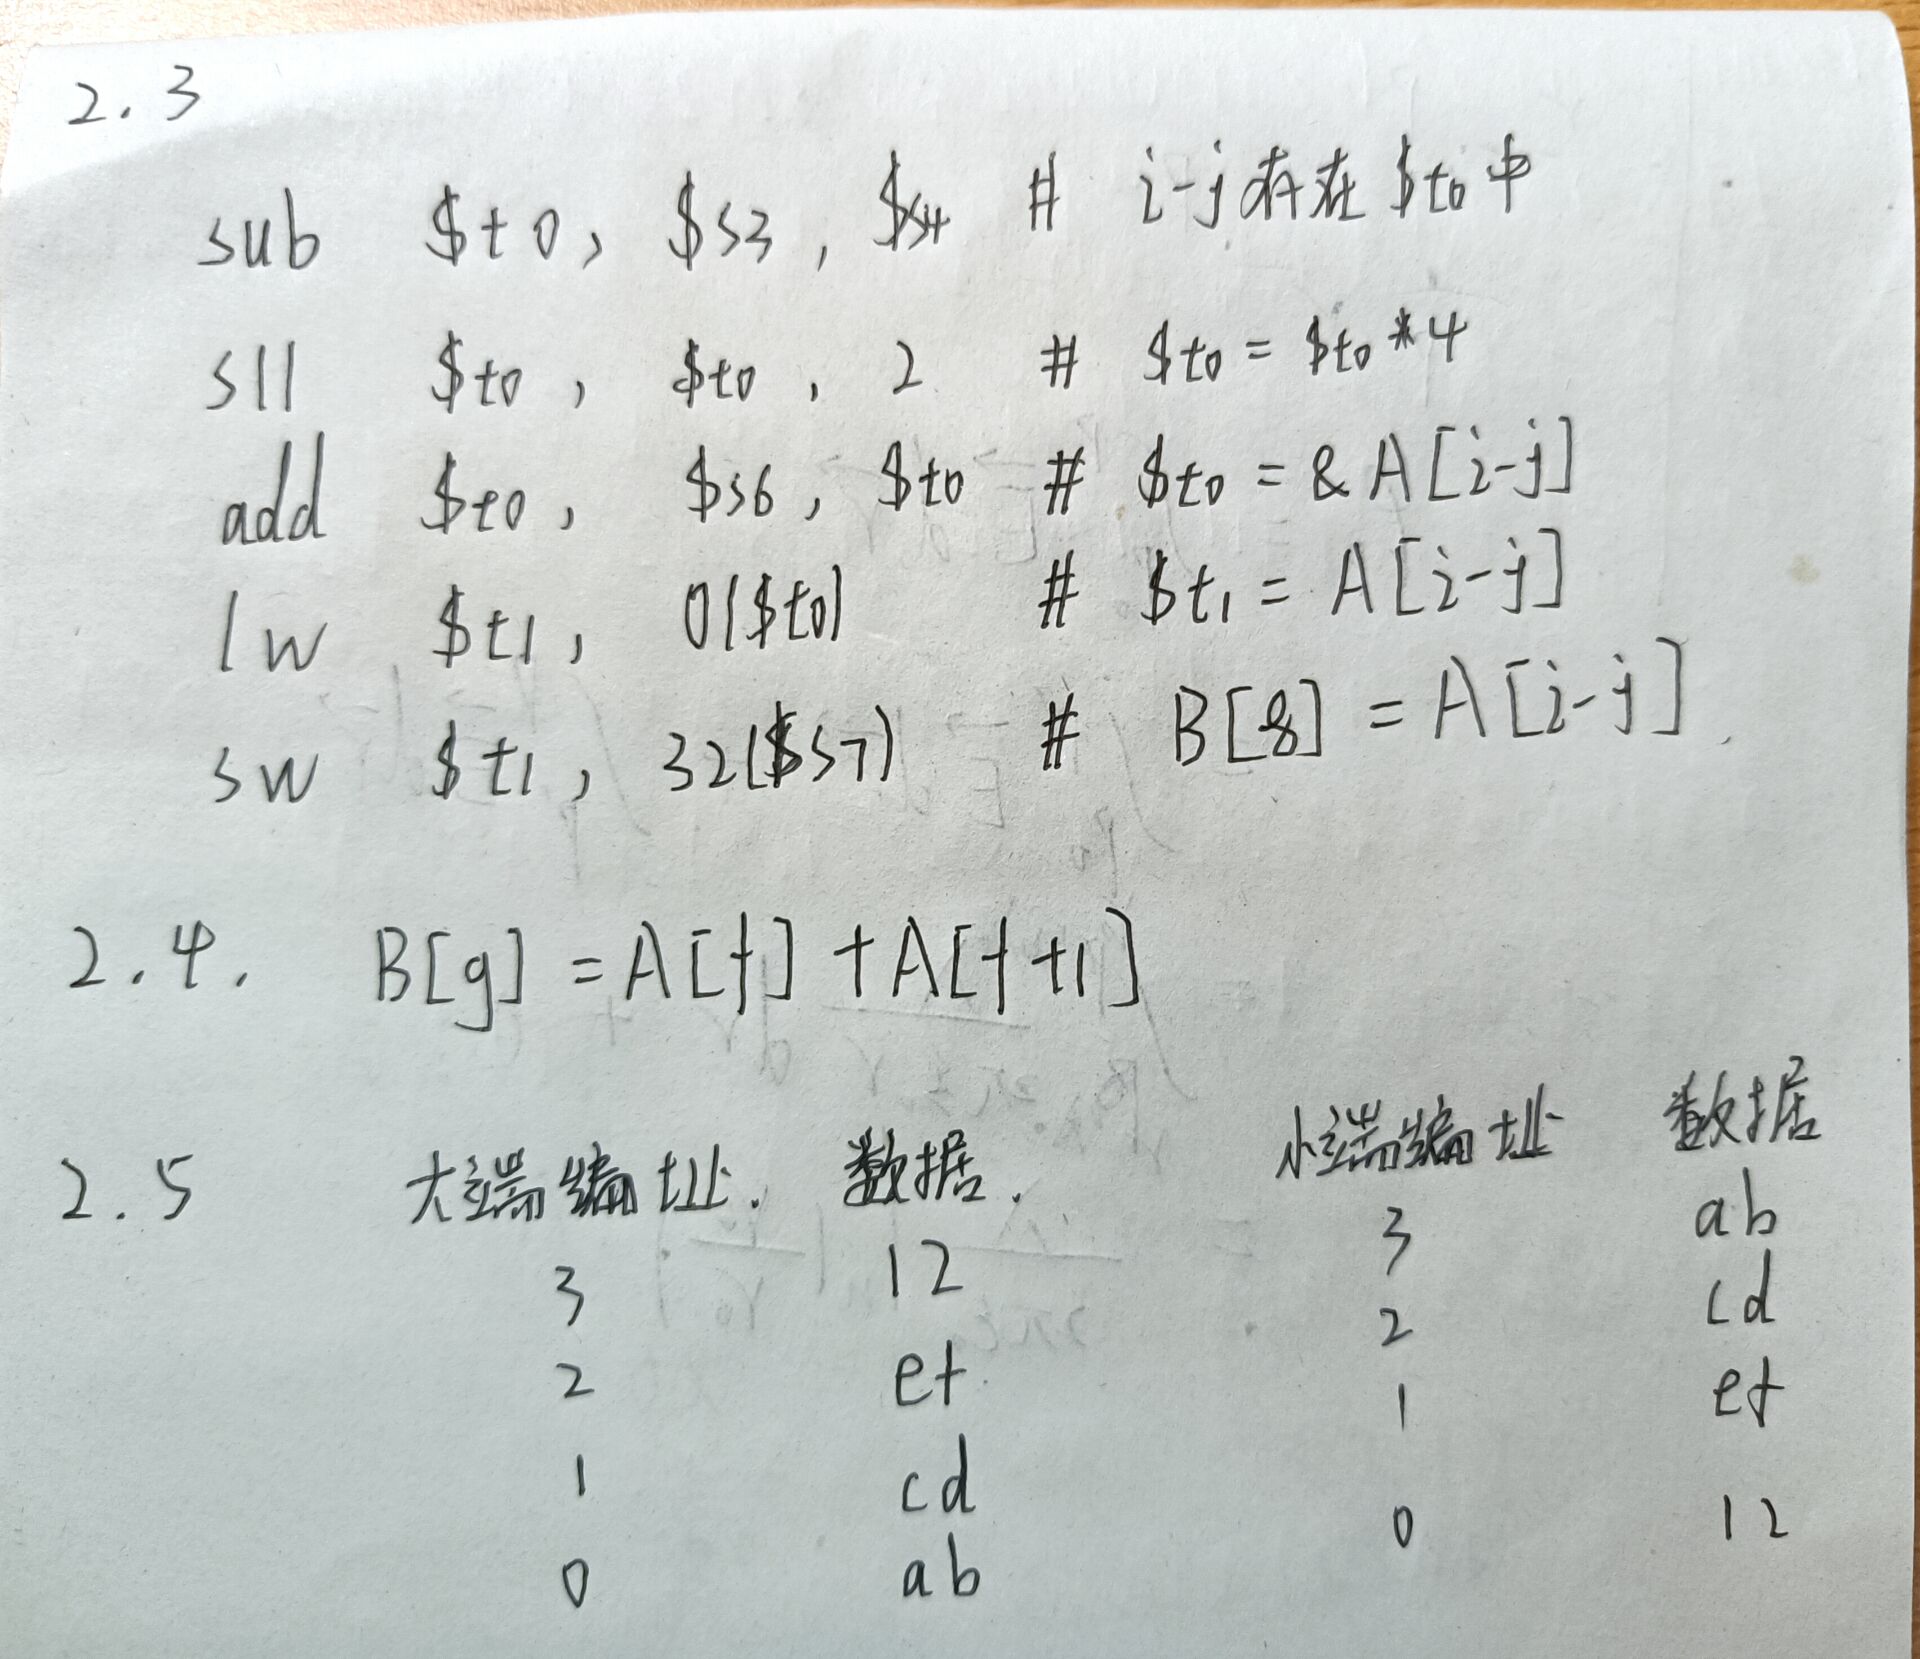 2.3
sub $t0, $s3, $s4 # i-j存在$t0中
sll $t0, $t0, 2 # $t0 = $t0*4
add $t0, $s6, $t0 # $t0 = &A[i-j]
lw $t1, 0($t0) # $t1 = A[i-j]
sw $t1, 32($s7) # B[8] = A[i-j].
2.4. B[g] = A[f] + A[f+1]
2.5 大端编址. 数据. 小端编址 数据
3 12 3 ab
2 ef 2 cd
1 cd 1 ef
0 ab 0 12